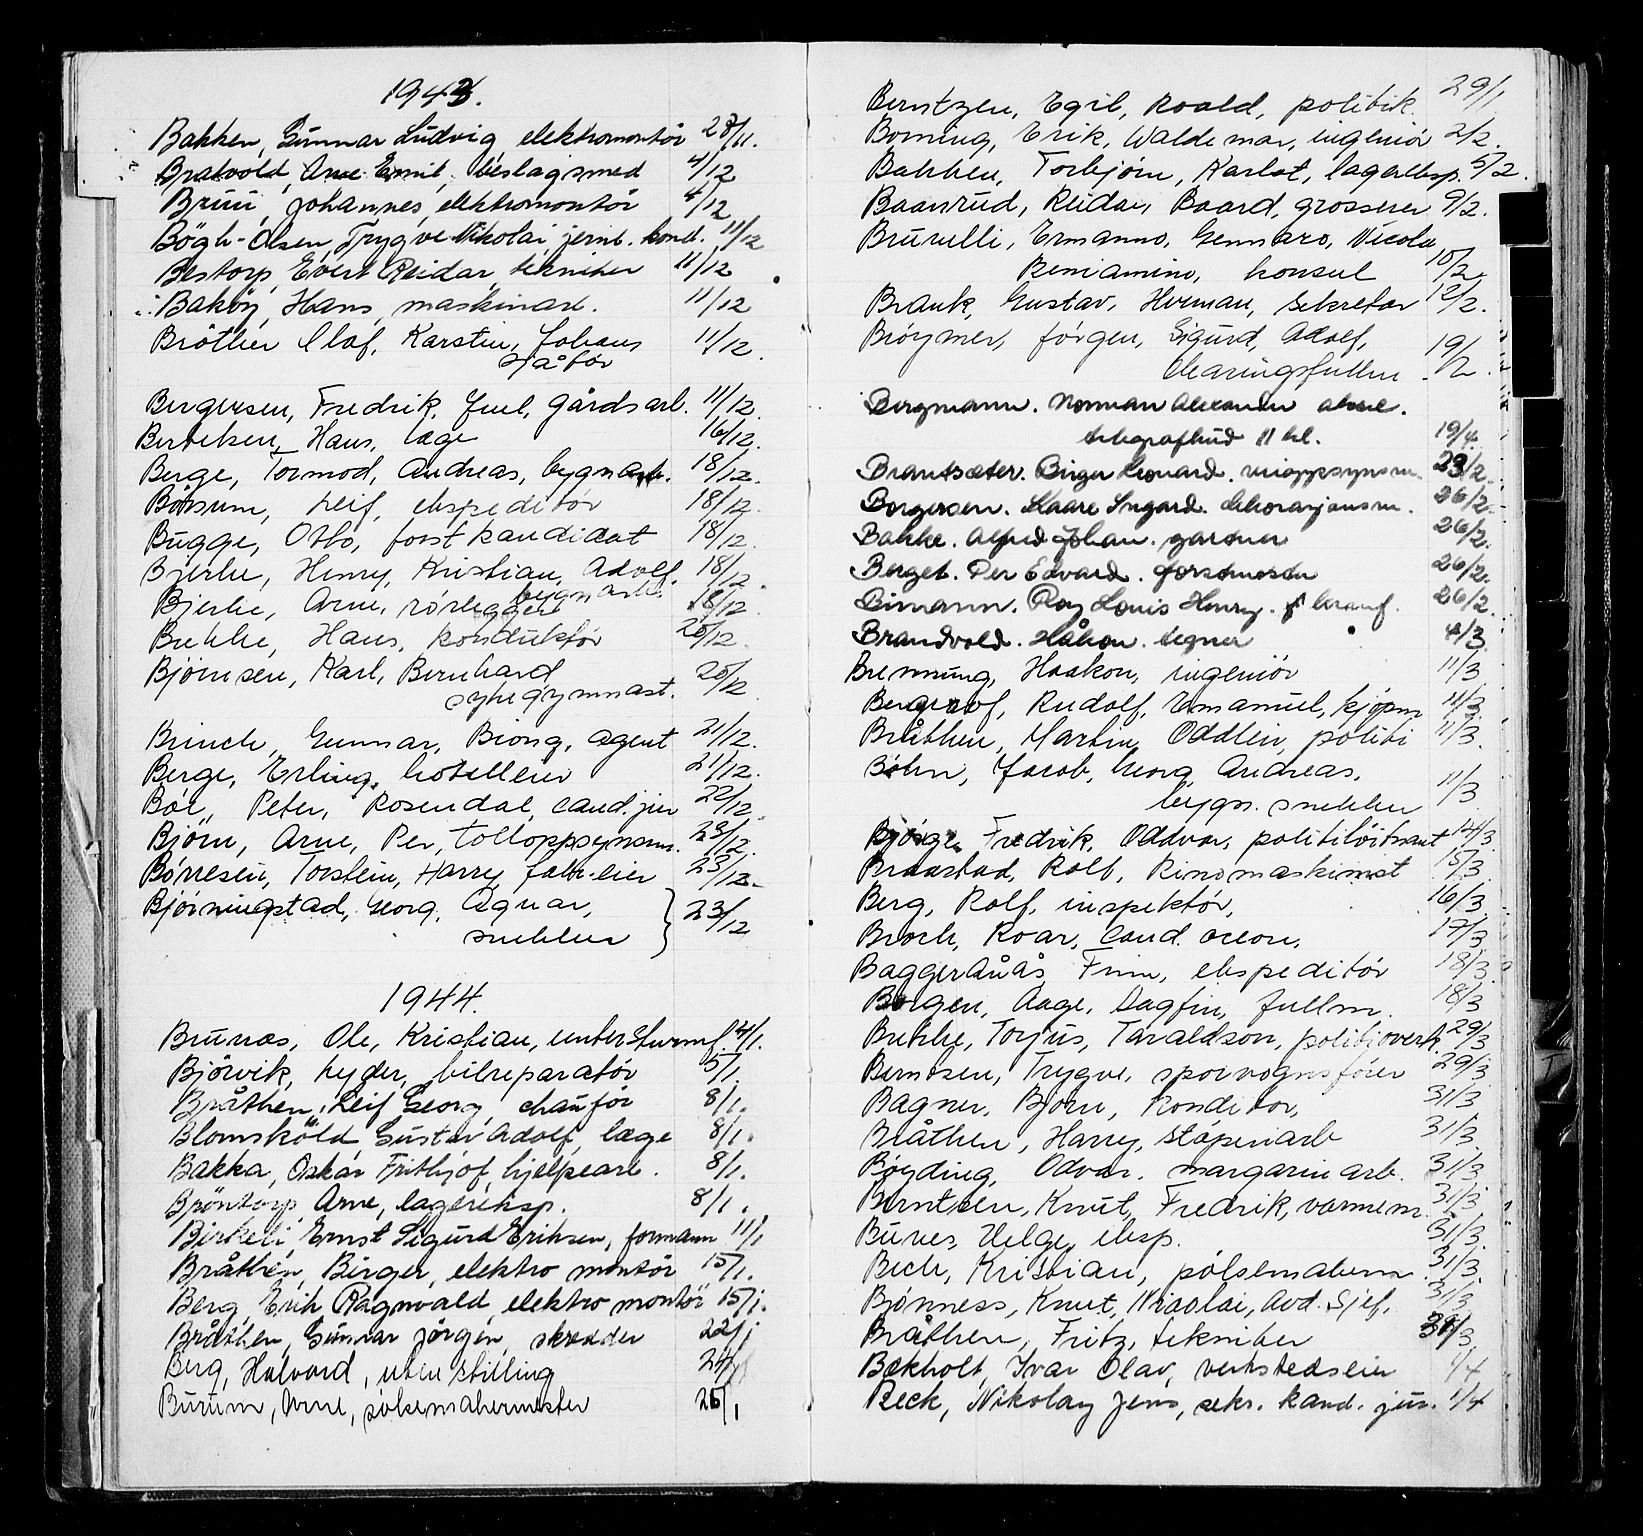 1943.
Bakken, Gunnar Ludvig elektromontör 28/11.
Bratvold, Arne Emil, beslagsmed 4/12
Bruu, Johannes, elektromontör 4/12
Bögh-Olsen, Trygve Nikolai jernb. kond. 11/12
Bestorp, Evert Reidar tekniker 11/12
Baköy, Hans, maskinarb. 11/12
Bråthen Olaf, Karstin, Johans 11/12.
sjåför
Bergersen, Fredrik, Juul, gårdsarb. 11/12.
Bertelsen, Hans, læge 16/12.
Berge, Tormod, Andreas, bygnarb. 18/12.
Börsum, Leif, ekspeditör 18/12.
Bugge, Otto, forstkandidat 18/12.
Bjerke, Henry, Kristian, Adolf. 18/12.
bygnarb.
Bjerke, Arne, rörlegger 18/12.
Brekke, Hans, konduktör 20/12.
Björnsen, Karl, Bernhard 20/12
sykegymnast.
Brinch, Gunnar, Biong, agent 21/12.
Berge, Erling, hoteleier 21/12.
Boe, Peter, Rosendal, cand. jur 22/12.
Björn, Arne, Per, tolloppsynsm. 23/12.
Børresen, Torstein, Harry fabr.eier 23/12.
Bjørningstad, Georg, Agnar, 23/12
snekker
1944.
Brunæs, Ole, Kristian, unterSturmf. 4/1.
Björvik, Lyder, bilreparatör 5/1.
Bråthen, Leif Georg chauför 8/1.
Blomsköld Gustav Adolf, læge 8/1.
Bakka, Oskar Fritjof, hjelpearb. 8/1.
Bröntorp, Arne, lagereksp. 8/1.
Birkeli, Ernst Sigurd Eriksen, formann 11/1
Bråthén, Birger, elektro montör 15/1.
Berg, Erik Ragnvald, elektro montör 15/1.
Bråthen, Gunnar Jörgen, skredder 22/1
Berg, Halvard, uten stilling 24/1
Burum, Arne, pölsemakermester 26/1
Berntzen, Egil, Roald, politik. 29/1
Borning, Erik, Waldemar, ingeniør 2/2.
Bakken, Torbjörn, Karlot, lagereksp. 5/2.
Baanrud, Reidar, Baard, grosserer 9/2.
Brurelli, Ermanno, Gennaro, Nicola,
Beniamino, konsul 10/2.
Brank, Gustav, Herman, sekretær 12/2.
Brøymer, Jörgen, Sigurd, Adolf,
clearingsfullm 19/2.
Bergmann. Norman Alexander
telegrafbud II kl. 19/4.
Brantsæter. Birger Leonard. 23/2.
Borgersen. Kaare Ingard. dekorasjonsm. 26/2.
Bakke. Alfred Johan. gartner 26/2.
Berget. Per Edvard. 26/2.
Bimann. Roy Louis Henry. 26/2.
Brandvold. Håkon. tegner 4/3.
Brenning, Haakon, ingeniör 11/3
Bergerof, Rudolf, Emanuel, kjöpm 11/3.
Bråthen, Martin, Oddlein, politi 11/3.
Böhn, Jacob, Georg Andreas,
bygn. snekker 11/3
Bjöige, Fredrik, Oddvar, politilöitnant 14/3
Braastad, Rolf, Kinomaskinist 15/3.
Berg, Rolf, inspektör, 16/3
Broch, Roar, cand. oecon. 17/3
Baggeråås Finn, ekspeditör 18/3.
Borgen, Aage, Dagfin, fullm. 18/3
Brekke, Torjus, Taraldson, politioverk. 29/3
Berntsen, Trygve, sporvognsförer 29/3
Bagner, Björn, Konditor, 31/3
Bråthen, Harry, støperiarb 31/3.
Bøyding, Odvar. margarinarb. 31/3
Berntsen, Knut, Fredrik, varmem. 31/3
Bunes, Helge, eksp. 31/3.
Bech, Kristian, pölsemakerm 31/3.
Bjønness, Knut, Nicolai, Avd. Sjef. 31/3.
Bråthen, Fritz, tekniker 31/3
Bekholt, Ivar Olav, verkstedseier 1/4
Beck, Nikolay Jens, sekr. kand. jur. 1/4